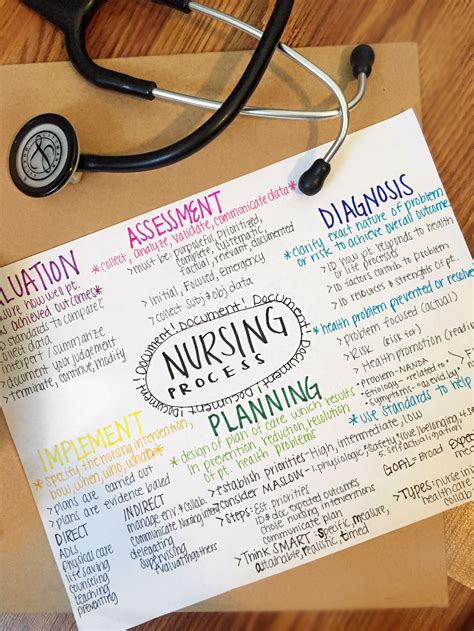 ASSESSMENT
*collect, analyze, validate, communicate data*
>must be: purposeful, prioritized,
complete, systematic,
factual, relevant, documented
> Initial, Focused, Emergency
> collect subj & obj data
DIAGNOSIS
*clarify exact nature of problem
or risk to achieve overall outcome
> ID how pt. responds to health
or life processes
> ID factors contrib to problem
> ID resources & strengths of pt.
*health problem prevented or resolved
> Problem focused (actual)
> Risk (risk for)
> Health promotion (read
Problem-NANDA
Etiology-related to
Symptoms-as evid. by
*Use standards to help
LUATION
sure how well pt.
achieved outcomes*
standards to compare
collect data
interpert / summarize
> document your judgement
> terminate, continue, modify
Document! Document! Document! Document! Document! Document!
NURSING
PROCESS
IMPLEMENT
*specify the nursing intervention,
how, when, who, what*
> plans are carried out
> plans are evidence based
DIRECT
ADLs
physical care
life saving
counseling
teaching
preventing
INDIRECT
manage env & collab.
communicate nursing interv.
delegating
supervising
evaluating others
PLANNING
*design of plan of care which results
in prevention, reduction, resolution
of pt. health problems*
> establish priorities-High, intermediate, low
consider MASLOW-1.physiologic,
love/belonging,
5. self actualization
> Steps: Est. priorities
ID & doc expected outcomes
chose nursing interventions
communicate plan
> Think SMART: Specific, measure,
attainable, realistic, timed
GOAL: Broad
> TYPES: nurse
healthcare
collab